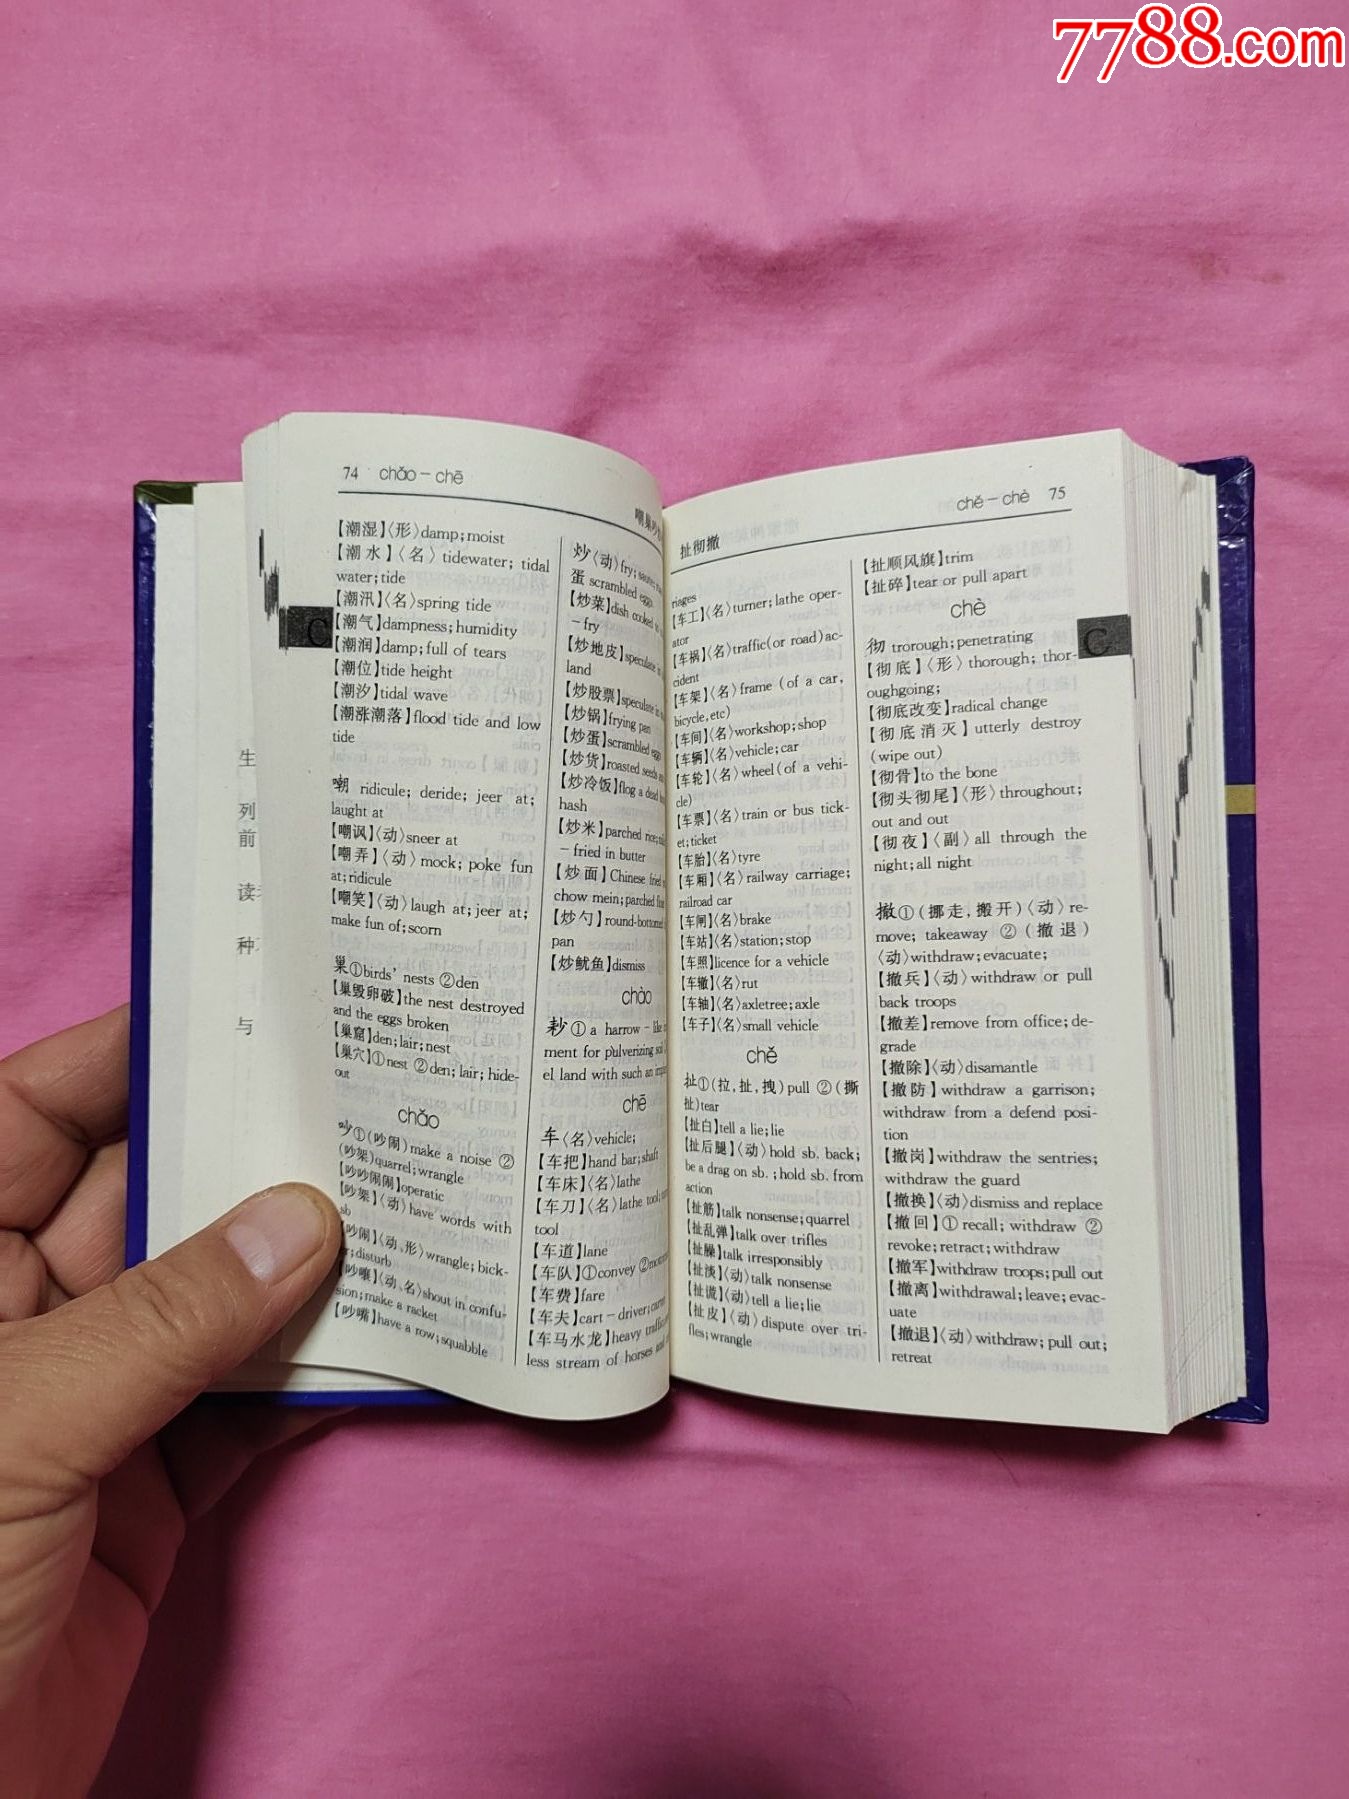 7788.com
74 chǎo－chē
【潮湿】〈形〉damp;moist
【潮水】〈名〉tidewater; tidal
water;tide
【潮汛】〈名〉spring tide
【潮气】dampness;humidity
【潮润】damp;full of tears
【潮位】tide height
【潮汐】tidal wave
【潮涨潮落】flood tide and low
tide
嘲 ridicule; deride; jeer at;
laught at
【嘲讽】〈动〉sneer at
【嘲弄】〈动〉mock; poke fun
at;ridicule
【嘲笑】〈动〉laugh at; jeer at;
make fun of;scorn
巢①birds' nests ②den
【巢毁卵破】the nest destroyed
and the eggs broken
【巢窟】den;lair;nest
【巢穴】①nest ②den; lair; hide-
out
chǎo
吵①(吵闹)make a noise ②
(吵架)quarrel;wrangle
【吵吵闹闹】operatic
【吵架】〈动〉have words with
sb
吵闹】〈动、形〉wrangle; bick-
r;disturb
【吵嚷】〈动、名〉shout in confu-
sion;make a racket
【吵嘴】have a row;squabble
炒〈动〉fry;
蛋 scrambled eggs
【炒菜】dish cooked
－fry
【炒地皮】speculate in
land
【炒股票】speculate in
【炒锅】frying pan
【炒蛋】scrambled eggs
【炒货】roasted seeds
【炒冷饭】flog a dead
hash
【炒米】parched rice;
－fried in butter
【炒面】Chinese fried
chow mein;parched
【炒勺】round-bottomed
pan
【炒鱿鱼】dismiss
chào
耖①a harrow－like
ment for pulverizing soil
el land with such an
chē
车〈名〉vehicle;
【车把】hand bar;shaft
【车床】〈名〉lathe
【车刀】〈名〉lathe tool;
tool
【车道】lane
【车队】①convey ②
【车费】fare
【车夫】cart－driver;
【车马水龙】heavy traffic
less stream of horses
chě－chè 75
扯彻撤
riages
【车工】〈名〉turner; lathe oper-
ator
【车祸】〈名〉traffic(or road)ac-
cident
【车架】〈名〉frame (of a car,
bicycle,etc)
【车间】〈名〉workshop;shop
【车辆】〈名〉vehicle;car
【车轮】〈名〉wheel(of a vehi-
cle)
【车票】〈名〉train or bus tick-
et;ticket
【车胎】〈名〉tyre
【车厢】〈名〉railway carriage;
railroad car
【车闸】〈名〉brake
【车站】〈名〉station;stop
【车照】licence for a vehicle
【车辙】〈名〉rut
【车轴】〈名〉axletree;axle
【车子】〈名〉small vehicle
chě
扯①(拉,扯,拽)pull ②(撕
扯)tear
【扯白】tell a lie;lie
【扯后腿】〈动〉hold sb. back;
be a drag on sb. ;hold sb. from
action
【扯筋】talk nonsense;quarrel
【扯乱弹】talk over trifles
【扯臊】talk irresponsibly
【扯淡】〈动〉talk nonsense
【扯谎】〈动〉tell a lie;lie
【扯皮】〈动〉dispute over tri-
fles;wrangle
【扯顺风旗】trim
【扯碎】tear or pull apart
chè
彻 trorough;penetrating
【彻底】〈形〉thorough; thor-
oughgoing;
【彻底改变】radical change
【彻底消灭】utterly destroy
(wipe out)
【彻骨】to the bone
【彻头彻尾】〈形〉throughout;
out and out
【彻夜】〈副〉all through the
night;all night
撤①(挪走,搬开)〈动〉re-
move; takeaway ②(撤退)
〈动〉withdraw;evacuate;
【撤兵】〈动〉withdraw or pull
back troops
【撤差】remove from office;de-
grade
【撤除】〈动〉disamantle
【撤防】withdraw a garrison;
withdraw from a defend posi-
tion
【撤岗】withdraw the sentries;
withdraw the guard
【撤换】〈动〉dismiss and replace
【撤回】①recall; withdraw ②
revoke;retract;withdraw
【撤军】withdraw troops;pull out
【撤离】withdrawal;leave;evac-
uate
【撤退】〈动〉withdraw;pull out;
retreat
C
C
生
列
前
读
种
与